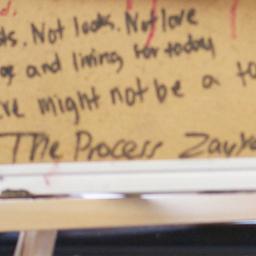 d.
ts. Not looks. Not love
and living for today
re might not be a to
The Process Zay